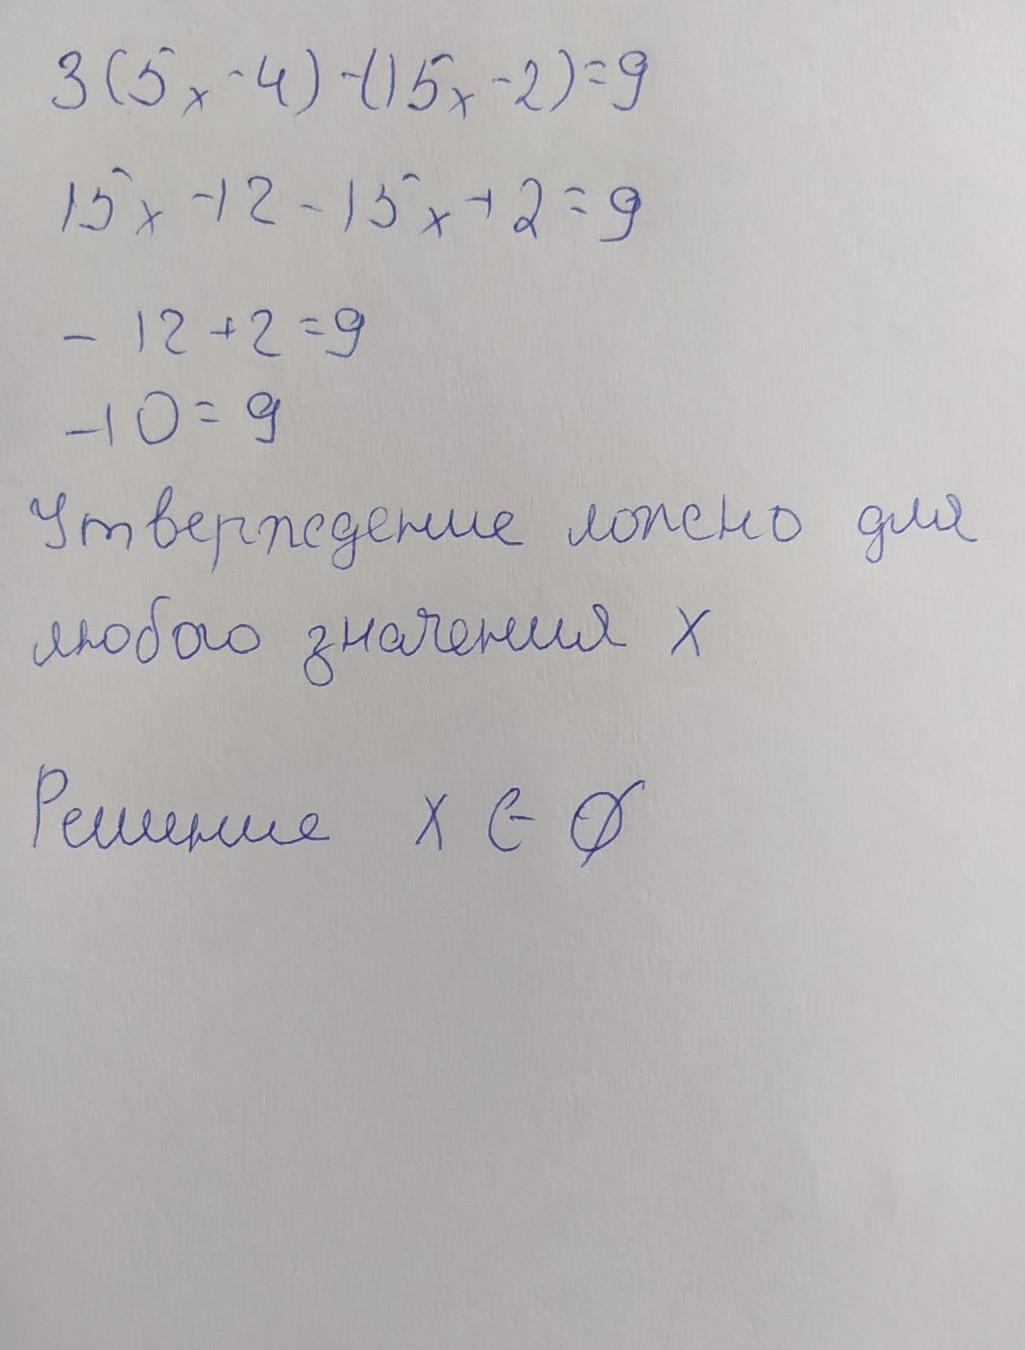 3(5x-4)-(15x-2)=9
15x-12-15x+2=9
-12+2=9
-10=9
Утверждение ложно для
любого значения х
Решение х ∈ Ø